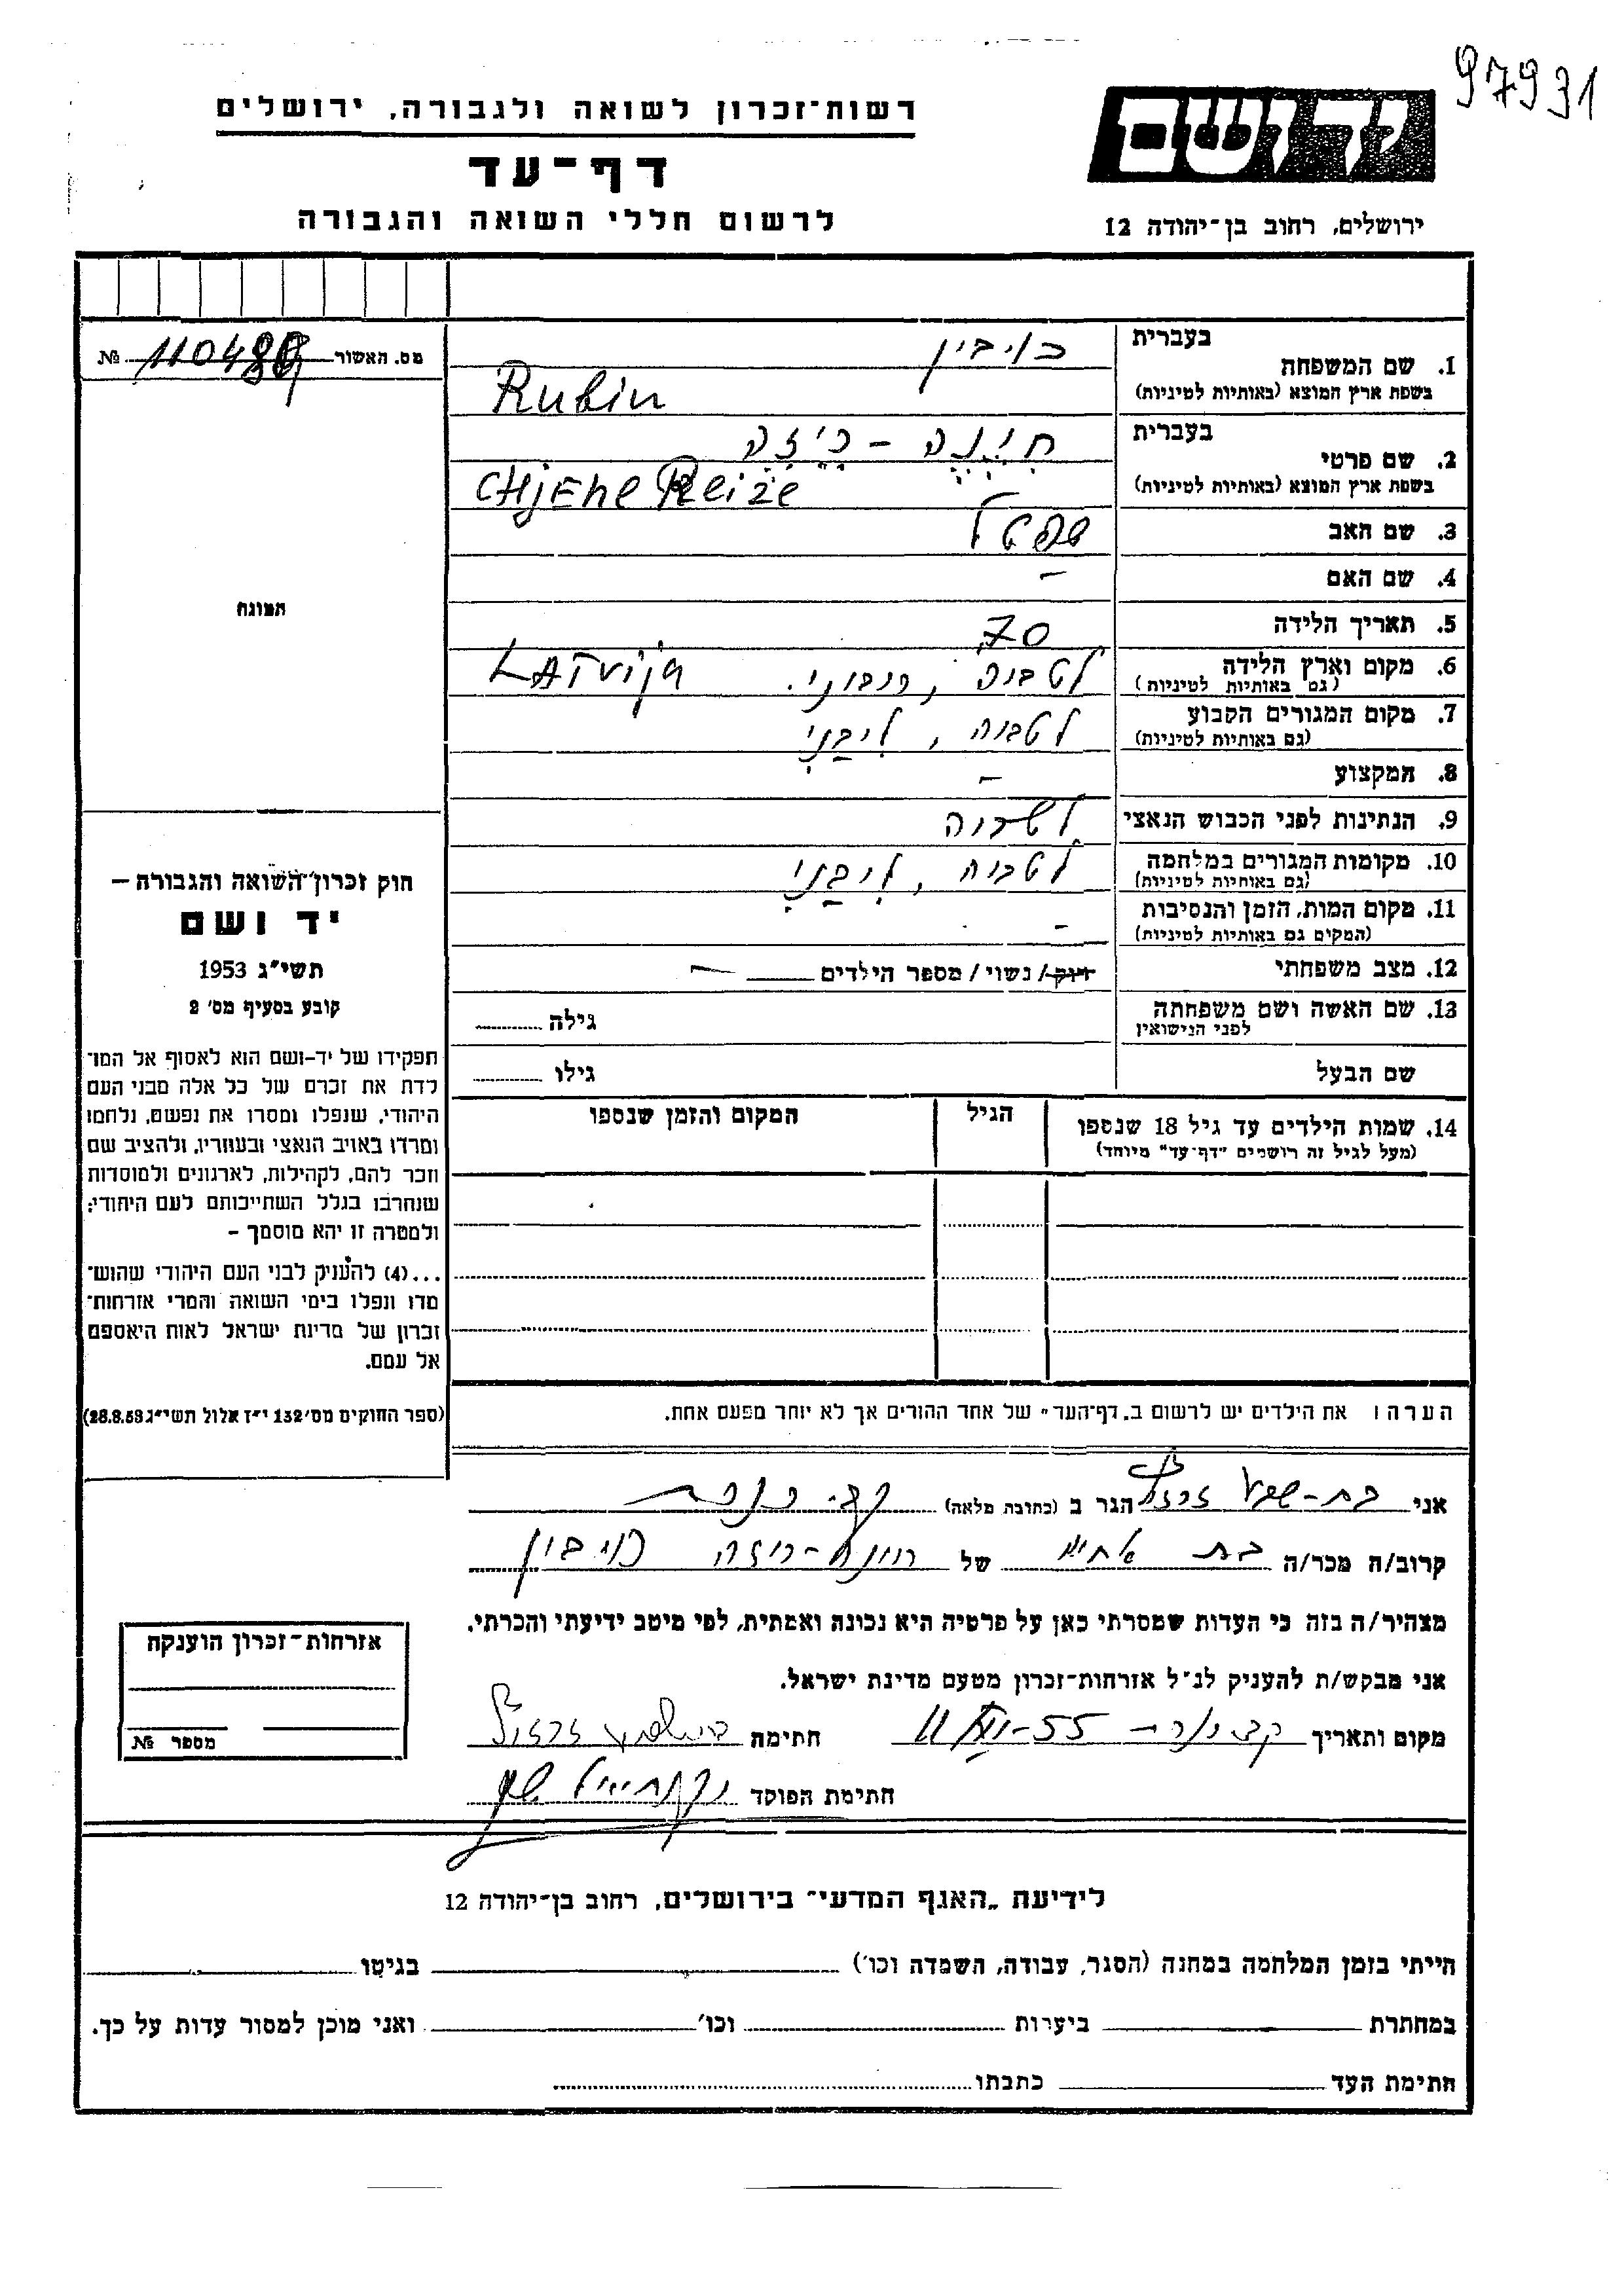 97931
רשות־זכרון לשואה ולגבורה, ירושלים
יד ושם
דף־עד
לרשום חללי השואה והגבורה
ירושלים, רחוב בן־יהודה 12
מס. האשור 110489 №
1. שם המשפחה בעברית רובין
בשפת ארץ המוצא (באותיות לטיניות) Rubin
2. שם פרטי בעברית חינה - ריזה
בשפת ארץ המוצא (באותיות לטיניות) CHjEne Reize
3. שם האב
4. שם האם –
5. תאריך הלידה 70
6. מקום וארץ הלידה לטביה, LATvija
(גם באותיות לטיניות)
7. מקום המגורים הקבוע לטביה, ליבני
(גם באותיות לטיניות)
8. המקצוע –
9. הנתינות לפני הכבוש הנאצי לטביה
10. מקומות המגורים במלחמה לטביה, ליבני
(גם באותיות לטיניות)
11. מקום המות, הזמן והנסיבות –
(המקום גם באותיות לטיניות)
12. מצב משפחתי רווק/נשוי/מספר הילדים –
13. שם האשה ושם משפחתה גילה
לפני הנישואין
שם הבעל גילו
14. שמות הילדים עד גיל 18 שנספו הגיל המקום והזמן שנספו
(מעל לגיל זה רושמים "דף־עד" מיוחד)
הערה: את הילדים יש לרשום ב„דף־העד" של אחד ההורים אך לא יותר מפעם אחת.
התונח
חוק זכרון השואה והגבורה –
יד ושם
תשי"ג 1953
קובע בסעיף מס' 2
תפקידו של יד-ושם הוא לאסוף אל המו־
לדת את זכרם של כל אלה מבני העם
היהודי, שנפלו ומסרו את נפשם, נלחמו
ומרדו באויב הנאצי ובעוזריו, ולהציב שם
וזכר להם, לקהילות, לארגונים ולמוסדות
שנחרבו בגלל השתייכותם לעם היהודי;
ולמטרה זו יהא מוסמך –
...(4) להעניק לבני העם היהודי שהוש־
מדו ונפלו בימי השואה והמרי אזרחות־
זכרון של מדינת ישראל לאות היאספם
אל עמם.
(ספר החוקים מס' 132 י"ז אלול תשי"ג 28.8.53)
אני בת-שבע הגר ב (כתובת מלאה) קב. כנרת
קרוב/ה מכר/ה בת אחיה של חינה-ריזה רובין
מצהיר/ה בזה כי העדות שמסרתי כאן על פרטיה היא נכונה ואמתית, לפי מיטב ידיעתי והכרתי.
אני מבקש/ת להעניק לנ"ל אזרחות־זכרון מטעם מדינת ישראל.
מקום ותאריך חתימה
חתימת הפוקד
אזרחות־זכרון הוענקה
מספר №
לידיעת „האגף המדעי" בירושלים, רחוב בן־יהודה 12
הייתי בזמן המלחמה במחנה (הסגר, עבודה, השמדה וכו') בגיטו
במחתרת ביערות וכו' ואני מוכן למסור עדות על כך.
חתימת העד כתבתו